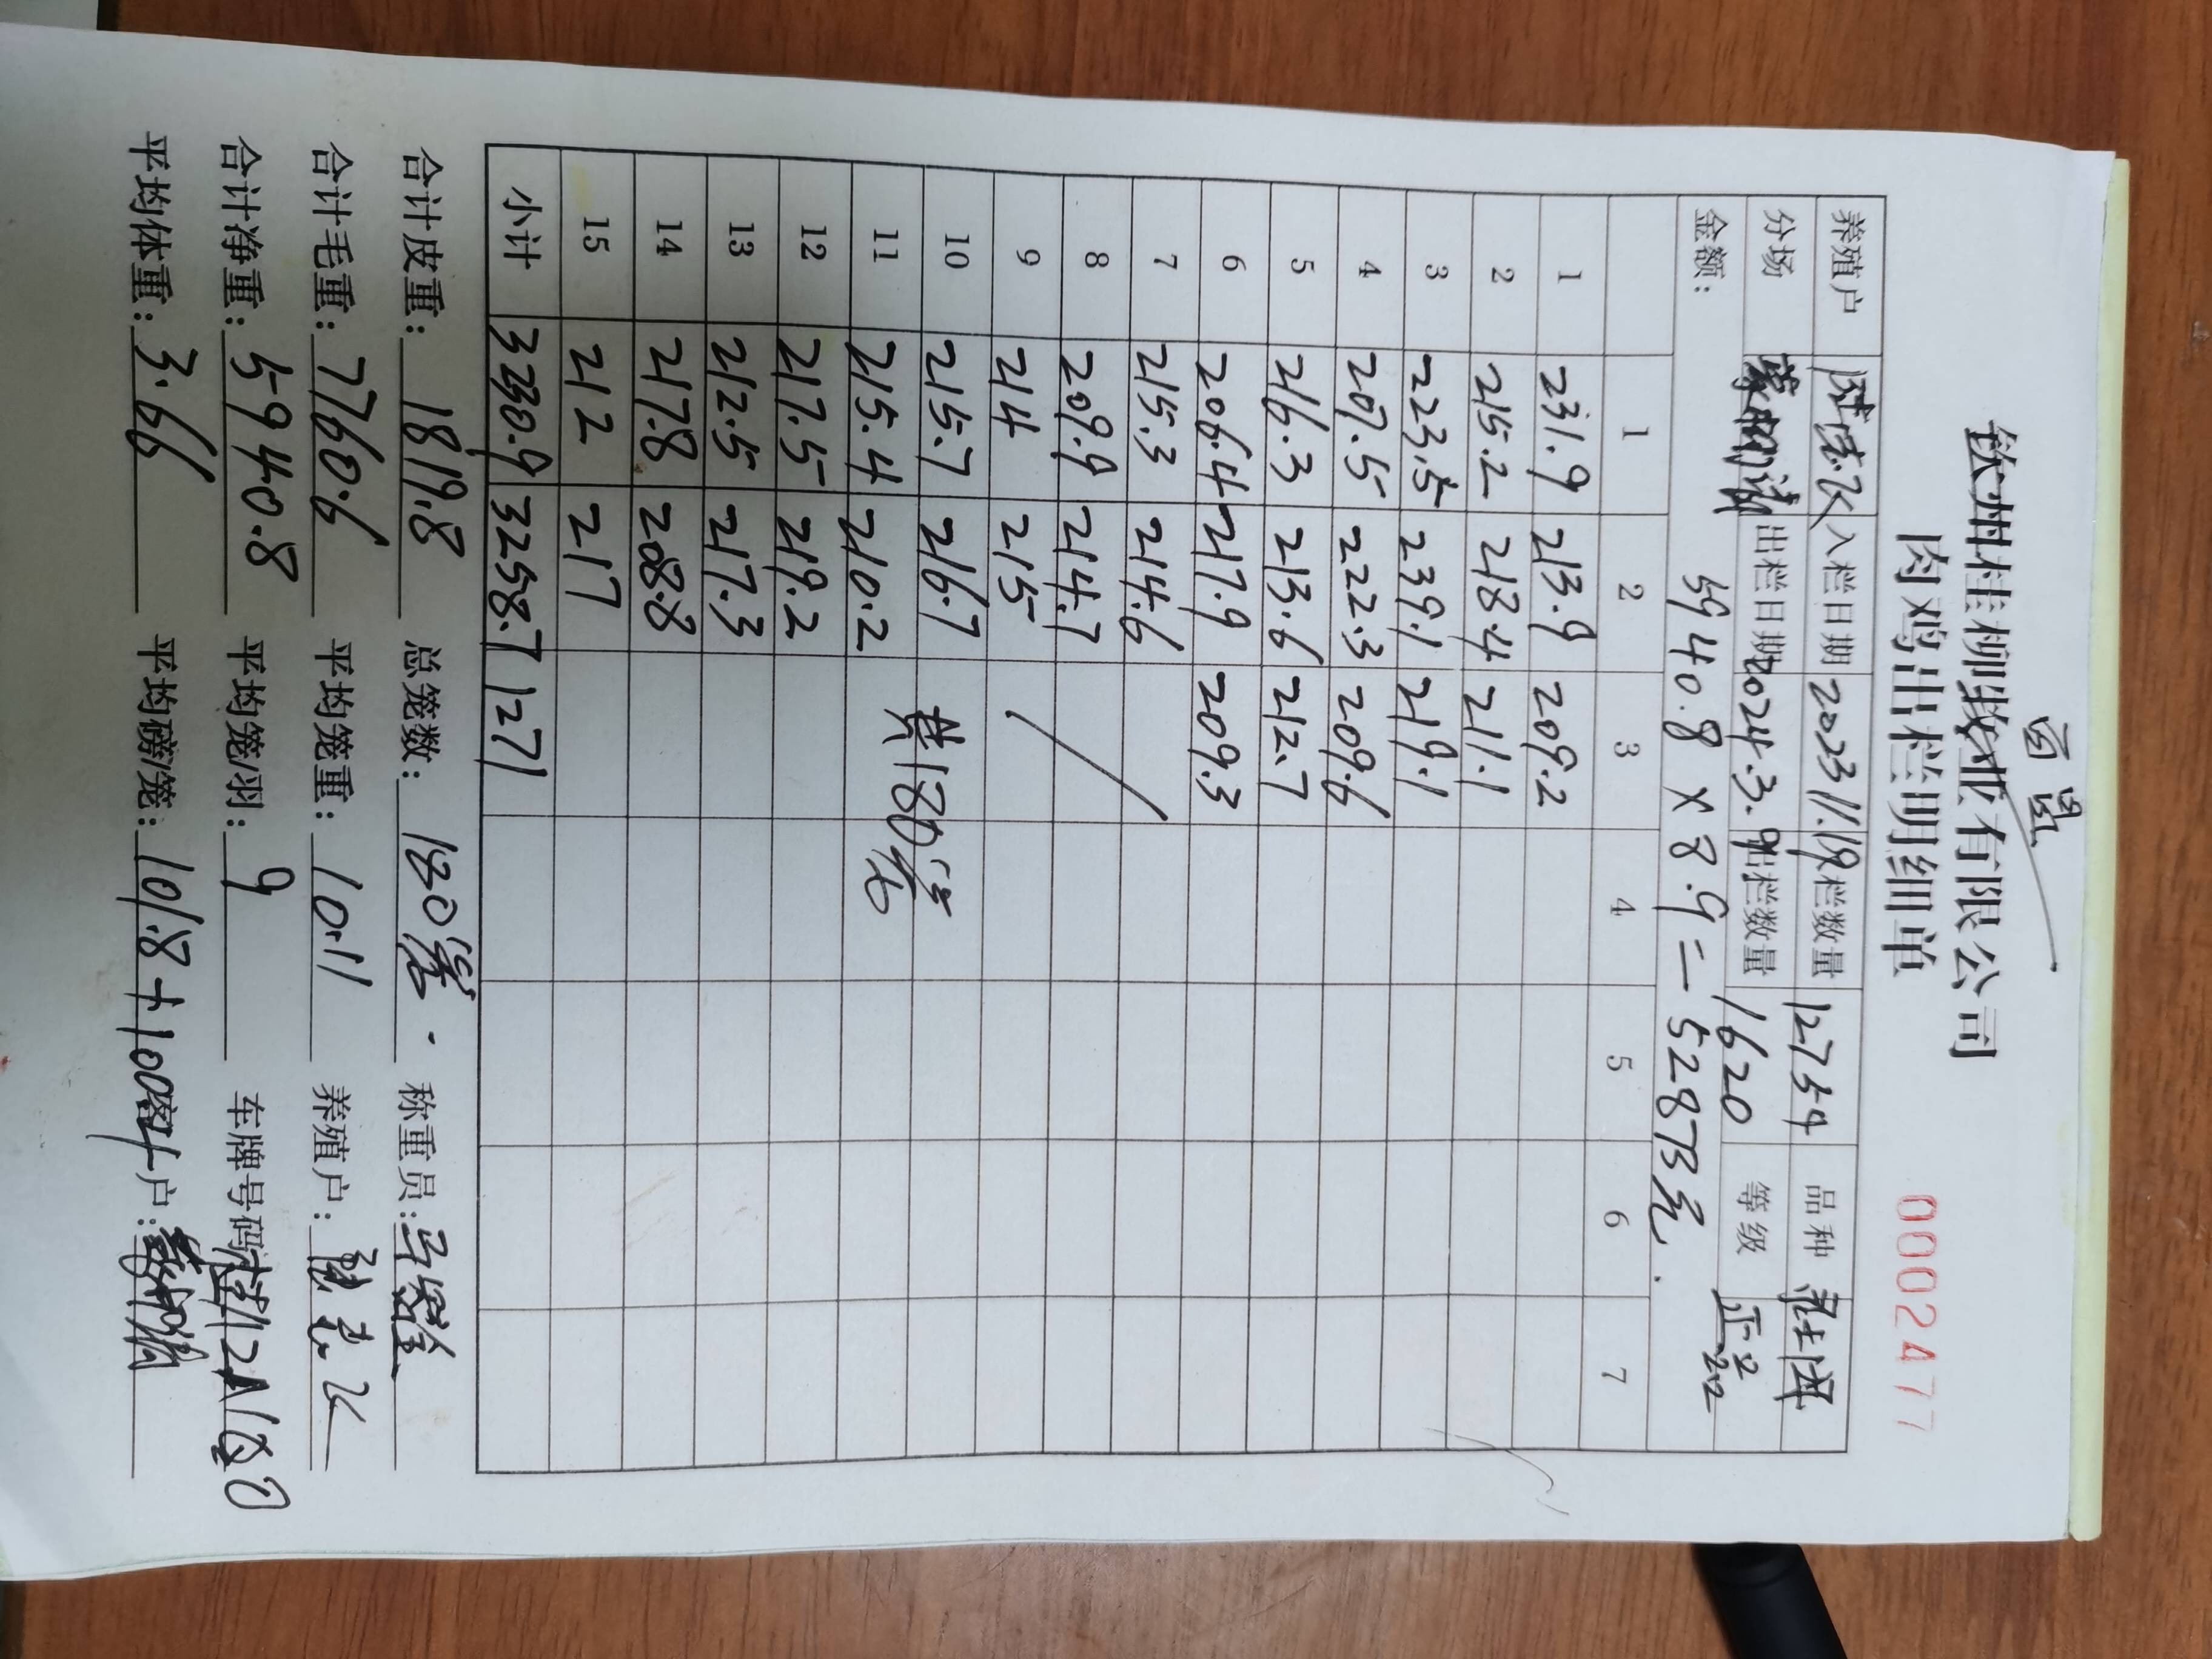 钦州桂柳牧业有限公司
肉鸡出栏明细单
0002477
养殖户 入栏日期 2023.11.19 栏数量 12734 品种
分场 出栏日期 2024.3.9 出栏数量 1620 等级 正品
金额: 5940.8×8.9=52873元.
1 2 3 4 5 6 7
1 231.9 213.9 209.2
2 215.2 218.4 211.1
3 223.5 239.1 219.1
4 207.5 222.3 209.6
5 216.3 213.6 212.7
6 206.4 217.9 209.3
7 215.3 214.6
8 209.9 214.7
9 214 215
10 215.7 216.7
11 215.4 210.2 共180笼
12 217.5 219.2
13 212.5 217.3
14 217.8 208.8
15 212 217
小计 3230.9 3258.7 1271
合计皮重: 1819.8 总笼数: 180笼. 称重员:
合计毛重: 7760.6 平均笼重: 10.11 养殖户:
合计净重: 5940.8 平均笼/羽: 9 车牌号码:
平均体重: 3.66 平均磅/笼: 101.8 户: